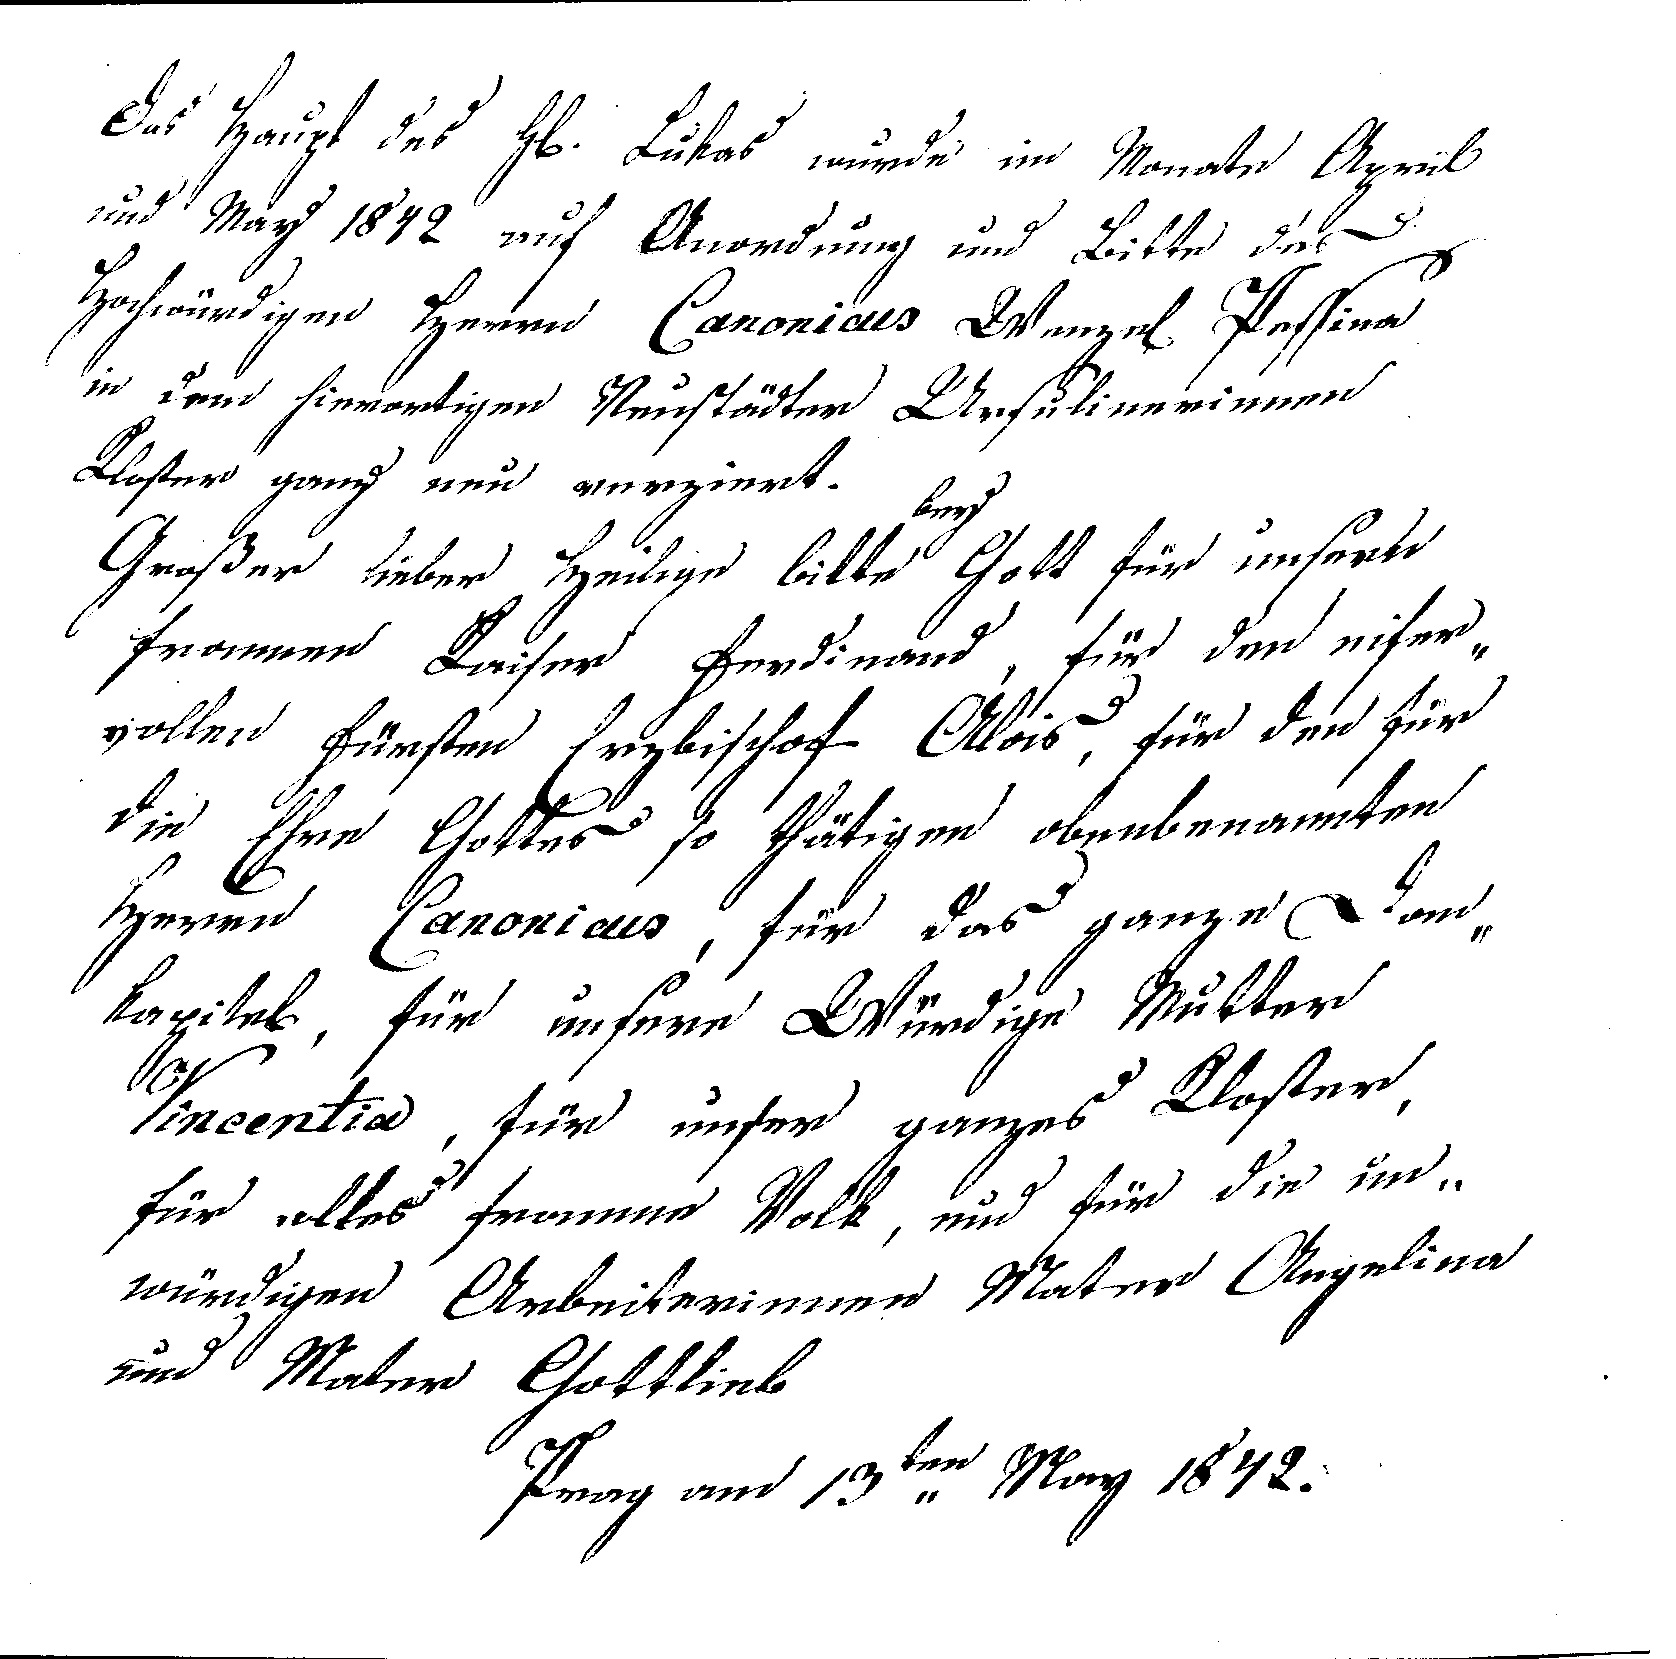 Das Haupt des Hl. Lukas wurde im Monate April
und May 1842 auf Anordnung und Bitte des
Hochwürdigen Herrn Canonicus Wenzel Pessina
in dem hierortigen Neustädter Ursulinerinnen
Kloster ganz neu verziert.
Großer lieber Heilige bitte bey Gott für unsern
frommen Kaiser Ferdinand, für den eifer„
vollen Fürsten Erzbischof Alois, für den für
die Ehre Gottes so thätigen obenbenannten
Herrn Canonicus, für das ganze Dom„
kapitel, für unsere Würdige Mutter
Vincentia, für unser ganzes Kloster,
für alles fromme Volk, und für die un„
würdigen Arbeiterinnen Mater Angelina
und Mater Gottlieb
Prag am 13ten May 1842.